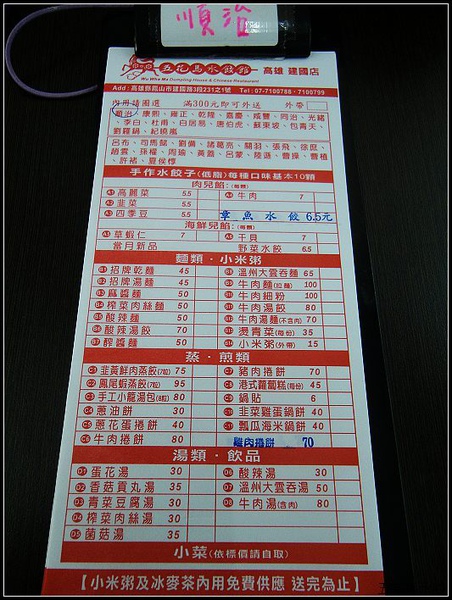 順治
五花馬水餃館 高雄 建國店
Wu Wha Ma Dumpling House & Chinese Restaurant
Add:高雄縣鳳山市建國路3段231之1號 Tel:07-7100788・7100799
內用請圈選 滿300元即可外送 外帶
順治、康熙、雍正、乾隆、嘉慶、咸豐、同治、光緒
、李白、杜甫、白居易、唐伯虎、蘇東坡、包青天、
劉羅鍋、紀曉嵐
呂布、司馬懿、劉備、諸葛亮、關羽、張飛、徐庶、
趙雲、孫權、周瑜、黃蓋、呂蒙、陸遜、曹操、曹植
、許褚、夏侯惇
手作水餃子(低脂)每種口味基本10顆
肉兒餡:(每顆)
A1 高麗菜 5
A2 韭菜 5
A3 四季豆 5.5
A4 牛肉 7
章魚水餃 6.5元
海鮮兒餡:(每顆)
A5 草蝦仁 7
當月新品
A7 干貝 7
野菜水餃 6.5
麵類・小米粥
B1 招牌乾麵 45
B2 招牌湯麵 45
B3 麻醬麵 50
B4 榨菜肉絲麵 50
B5 酸辣麵 50
B6 酸辣湯餃 70
B7 醡醬麵 50
溫州大雲吞麵 65
牛肉麵(拉麵) 100
牛肉細粉 100
牛肉湯餃 80
牛肉湯麵(不含肉) 70
燙青菜(每份) 35
小米粥(外帶) 15
蒸・煎類
C1 韭黃鮮肉蒸餃(7粒) 75
C2 鳳尾蝦蒸餃(7粒) 95
C3 手工小籠湯包(8粒) 80
C4 蔥油餅 30
C5 蔥花蛋捲餅 40
C6 牛肉捲餅 80
C7 豬肉捲餅 70
C8 港式蘿蔔糕(每份) 45
C9 鍋貼 6
韭菜雞蛋鍋餅 40
瓠瓜海米鍋餅 40
雞肉捲餅 70
湯類・飲品
D1 蛋花湯 30
D2 香菇貢丸湯 35
D3 青菜豆腐湯 30
D4 榨菜肉絲湯 30
D5 菌菇湯 35
D6 酸辣湯 30
D7 溫州大雲吞湯 50
D8 牛肉湯(含肉) 80
小菜(依標價請自取)
【小米粥及冰麥茶內用免費供應 送完為止】